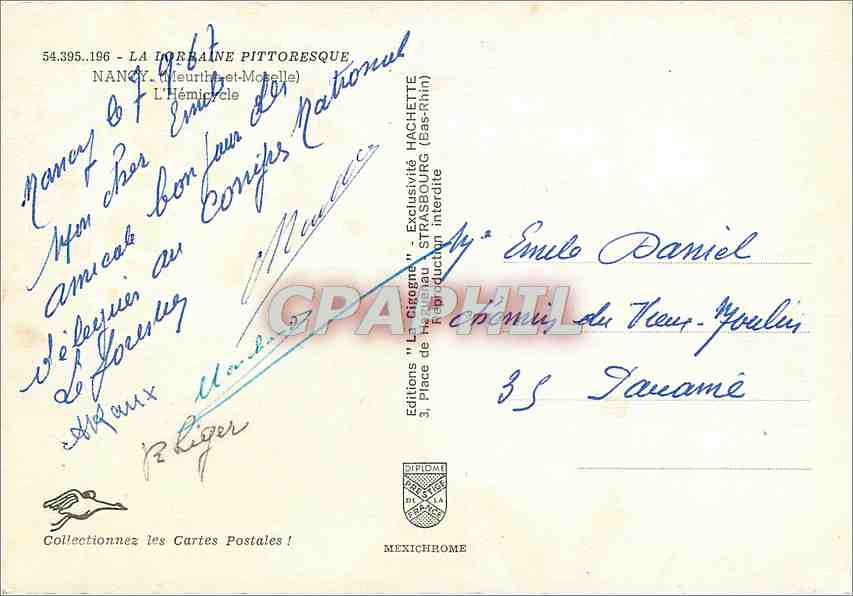 54.395..196 - LA LORRAINE PITTORESQUE
NANCY (Meurthe-et-Moselle)
L'Hémicycle
Nancy le 7-9-67
Mon cher Emile
amicale bonjour des
Délégués au Congrès National
Le Foresney
ARaux
R Liger
CPAPHIL.COM
Editions "La Cigogne" - Exclusivité HACHETTE
3, Place de Haguenau - STRASBOURG (Bas-Rhin)
Reproduction interdite
Mr Emile Daniel
chemin du Vieux-Moulin
35 Paramé
DIPLOME
PRESTIGE
DE LA
FRANCE
MEXICHROME
Collectionnez les Cartes Postales !